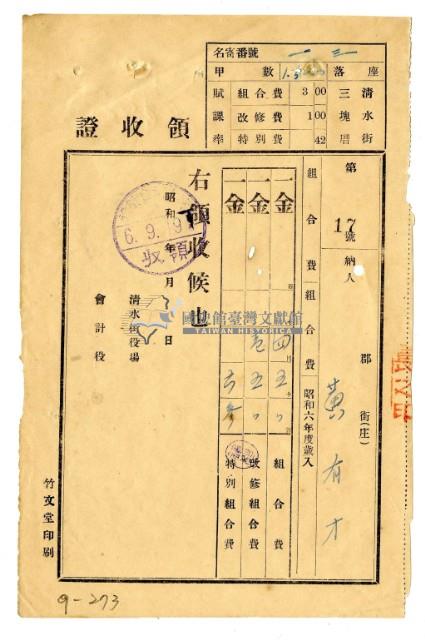 名寄番號 一三
甲數 落座
賦課率 組合費 3 00 三塊厝 清水街
改修費 1 00
特別費 42
領收證
第17號 納人 郡 街(庄) 黃有才
組合費組合費 昭和六年度歲入
一金 四五 組合費
一金 壱五 改修組合費
一金 六 特別組合費
右領收候也
昭和 年 月 日
6.9.19
領收
清水街役場
會計役
竹文堂印刷
國史館臺灣文獻館
TAIWAN HISTORICA
9-273